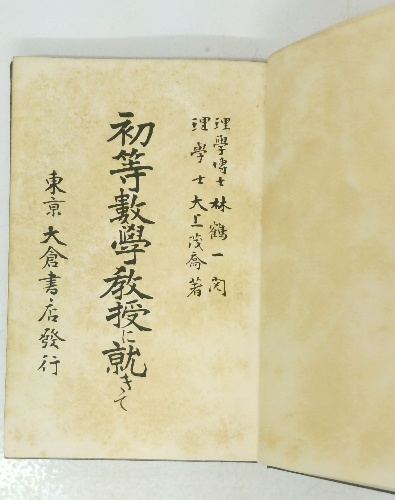 理學博士 林鶴一 閲
理學士 大上茂喬 著
初等數學教授に就きて
東京 大倉書店發行